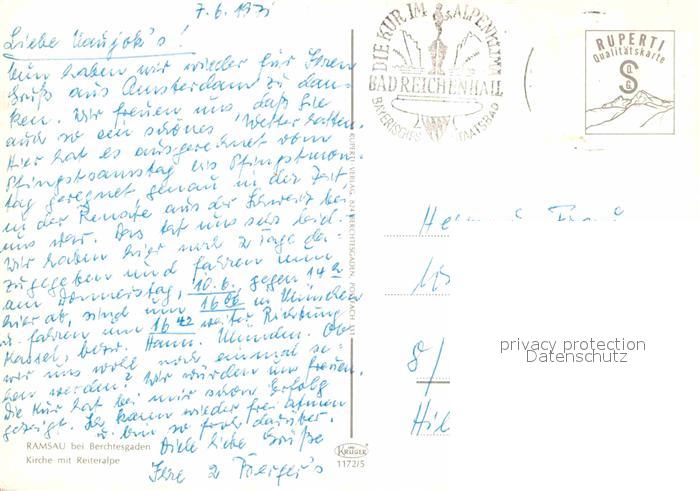 7.6.1971
Liebe Naujok's!
Nun haben wir wieder für Ihren
Gruß aus Amsterdam zu dan-
ken. Wir freuen uns, daß Sie
auch so ein schönes Wetter hatten.
Hier hat es ausgerechnet vom
Pfingstsamstag bis Pfingstmon-
tag geregnet genau in der Zeit,
in der Renate aus der Schweiz bei
uns war. Das tat uns sehr leid.
Wir haben hier noch 2 Tage da-
zugegeben und fahren nun
am Donnerstag, 10.6. gegen 14
hier ab, sind um 16 06 in München
u. fahren um 16 42 weiter Richtung
Kassel, bezw. Hann. Münden. Ob
wir uns wohl noch einmal se-
hen werden? Wir würden uns freuen.
Die Kur hat bei mir schon Erfolg
gezeigt. Ich kann wieder frei atmen
u. bin so froh darüber.
Viele liebe Grüße
Ihre 2
RAMSAU bei Berchtesgaden
Kirche mit Reiteralpe
KRÜGER
1172/5
RUPERTI VERLAG 824 BERCHTESGADEN POSTFACH 331
DIE KUR IM ALPENKLIMA
BAD REICHENHALL
BAYERISCHES STAATSBAD
RUPERTI
Qualitätskarte
privacy protection
Datenschutz
8/
Hil